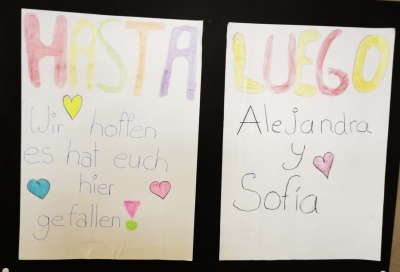 HASTA
Wir hoffen
es hat euch
hier
gefallen!
LUEGO
Alejandra
y
Sofía